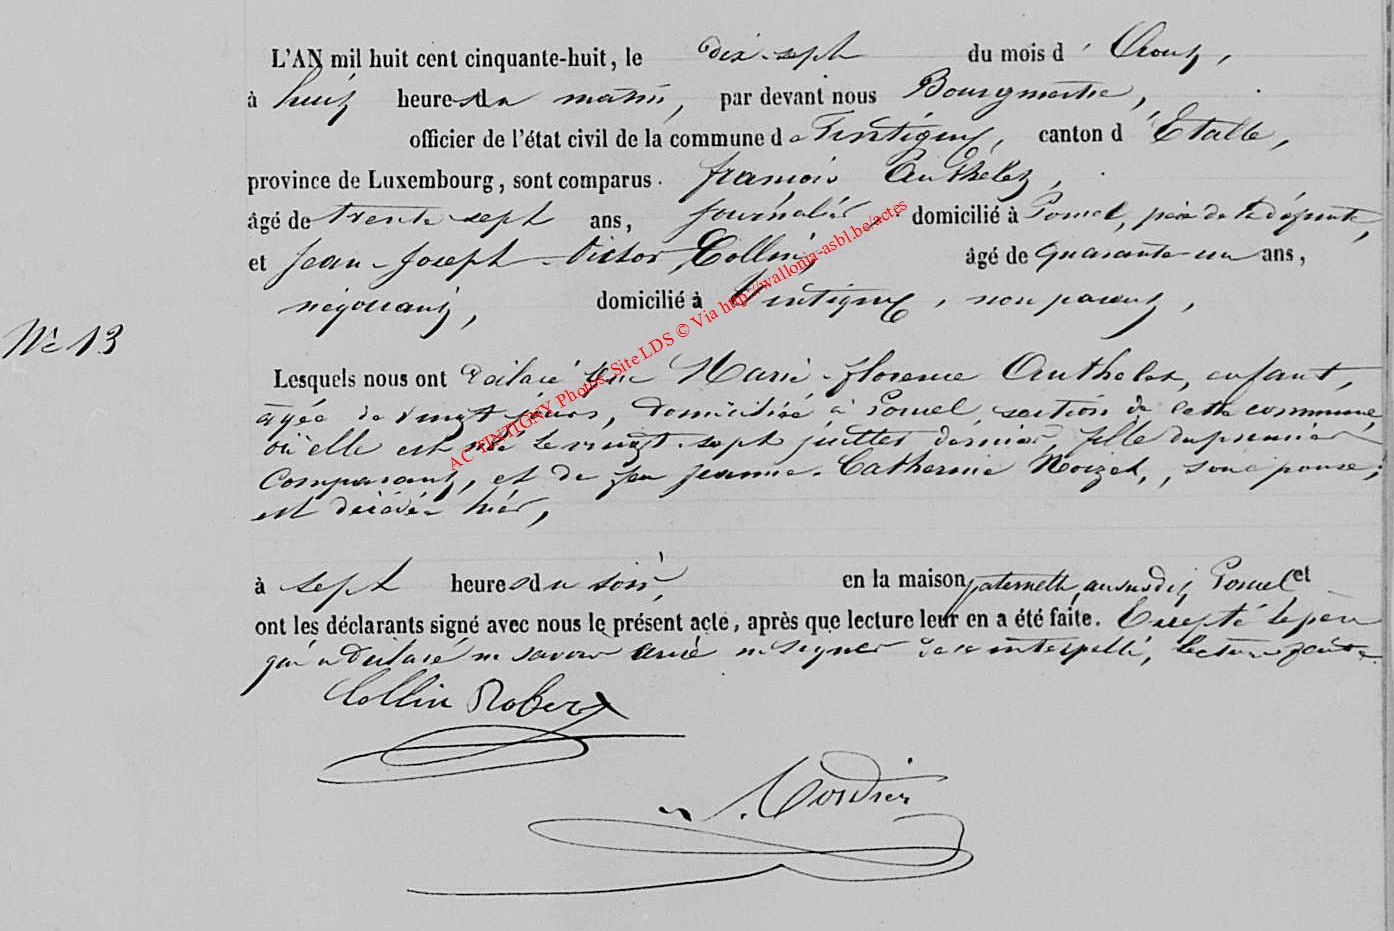 L'AN mil huit cent cinquante-huit, le dix-sept du mois d'Aout,
à huit heures du matin, par devant nous Bourgmestre,
officier de l'état civil de la commune de Tintigny, canton d'Etalle,
province de Luxembourg, sont comparus. françois Authelet,
âgé de trente-sept ans, journalier, domicilié à Poncel, père de la défunte,
et Jean-Joseph-Victor Collin, âgé de quarante-un ans,
négociant, domicilié à Tintigny, non parent,
N° 13
Lesquels nous ont déclaré que Marie-florence Authelet, enfant,
âgée de vingt jours, domiciliée à Poncel section de cette commune,
où elle est née le vingt-sept juillet dernier, fille du premier
comparant, et de feu Jeanne-Catherine Noizet, son épouse,
est décédée hier,
à sept heures du soir, en la maison paternelle, au susdit Poncel et
ont les déclarants signé avec nous le présent acte, après que lecture leur en a été faite. Excepté le père
qui a déclaré ne savoir écrire ni signer de ce interpellé, lecture faite.
Collin Robert
Cordier
AC TINTIGNY Photos Site LDS © Via http://wallonia-asbl.be/actes